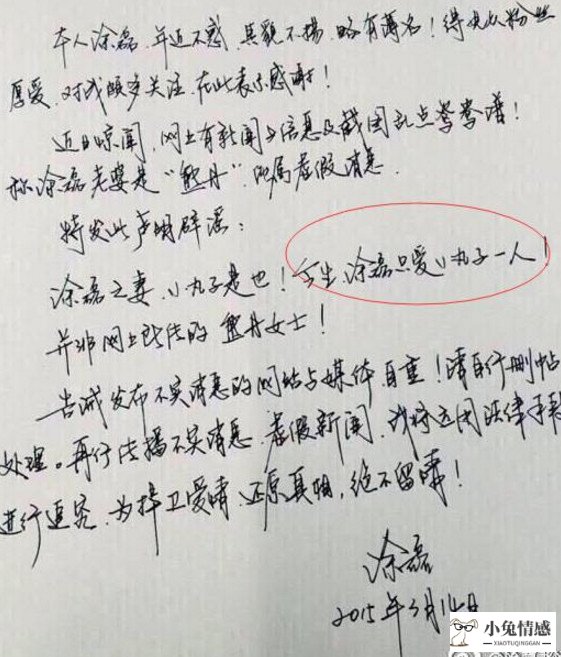 本人涂磊，年近不惑，其貌不扬，略有薄名！得众粉丝
厚爱，对我颇多关注，在此表示感谢！
近日惊闻，网上有新闻与信息及截图乱点鸳鸯谱！
称涂磊老婆是“敖丹”，纯属虚假消息．
特发此声明辟谣：
涂磊之妻，小丸子是也！今生，涂磊只爱小丸子一人！
并非网上所传的 女士！
告诫发布不实消息的网站与媒体，自重！请自行删帖
处理。再行传播不实消息，虚假新闻，我将运用法律手段
进行追究，为捍卫爱情，还原真相，绝不留情！
涂磊
2015年3月14日
小兔情感
XIAOTUQINGGAN